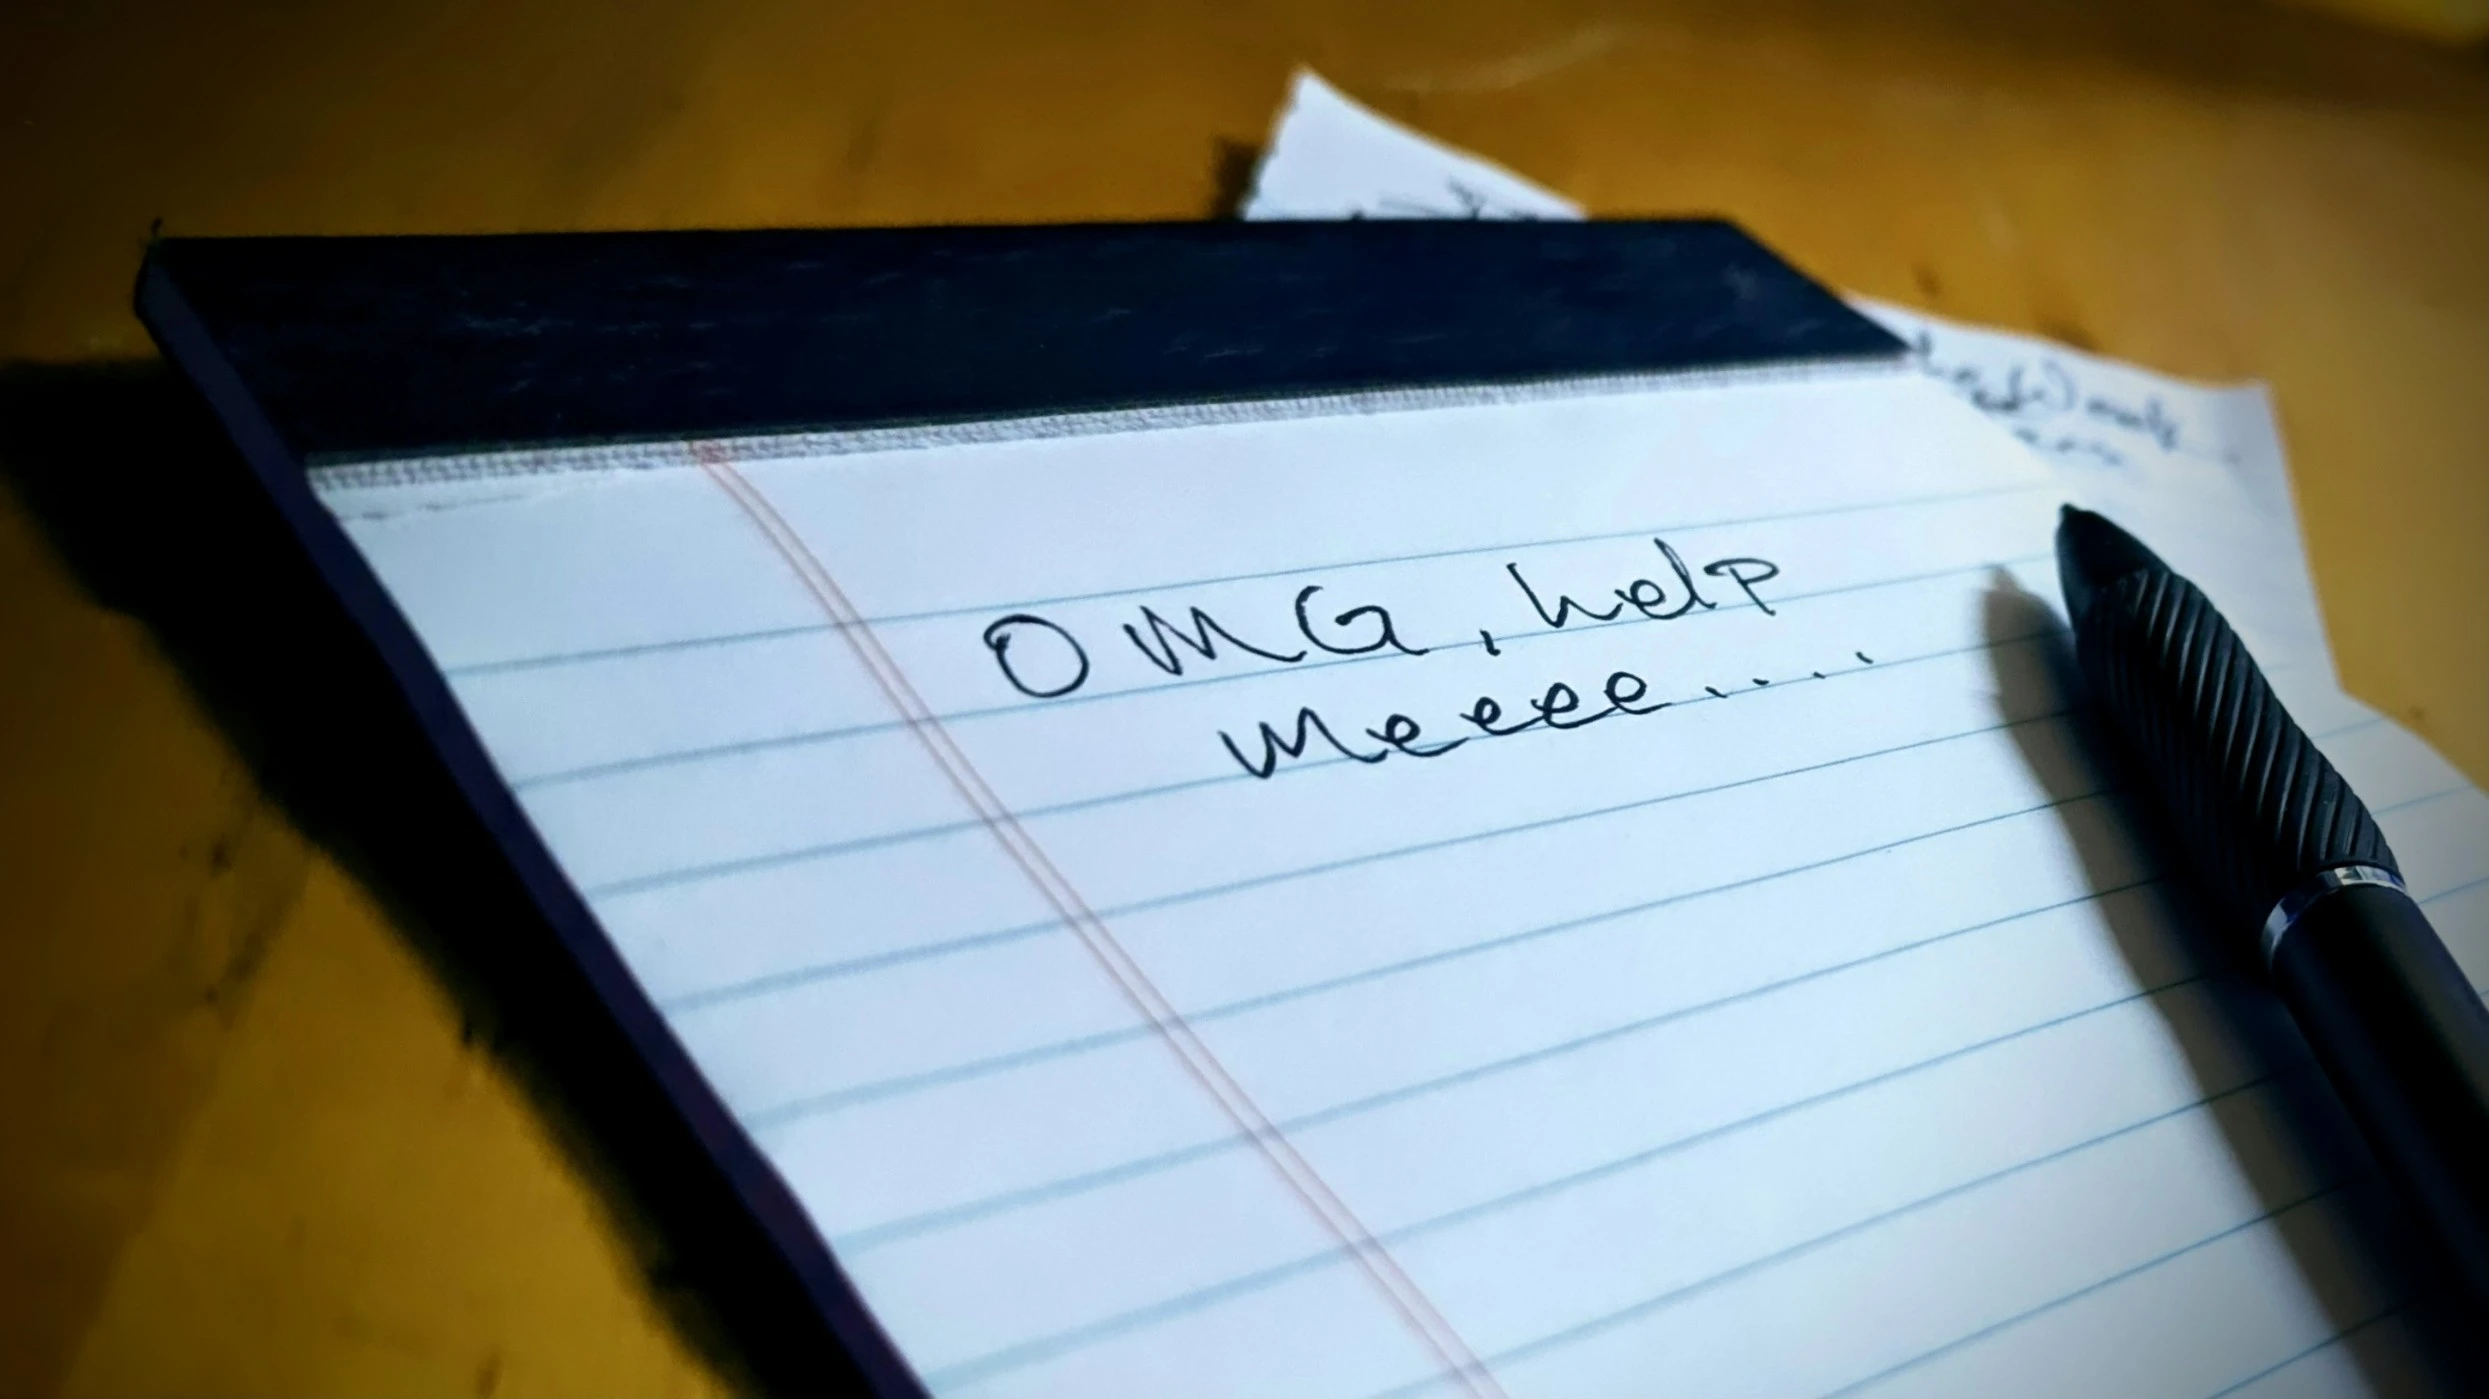 OMG, help
meeee....